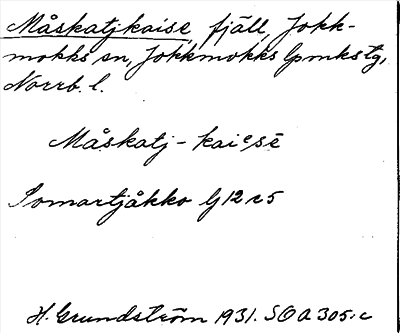 Måskatjkaise, fjäll, Jokk-
mokks sn, Jokkmokks lpmkstg,
Norrb. l.
Måskatj-kaiᵉsē
Pomartjåkko G 12 r 5
H. Grundström 1931. SOA 305:c